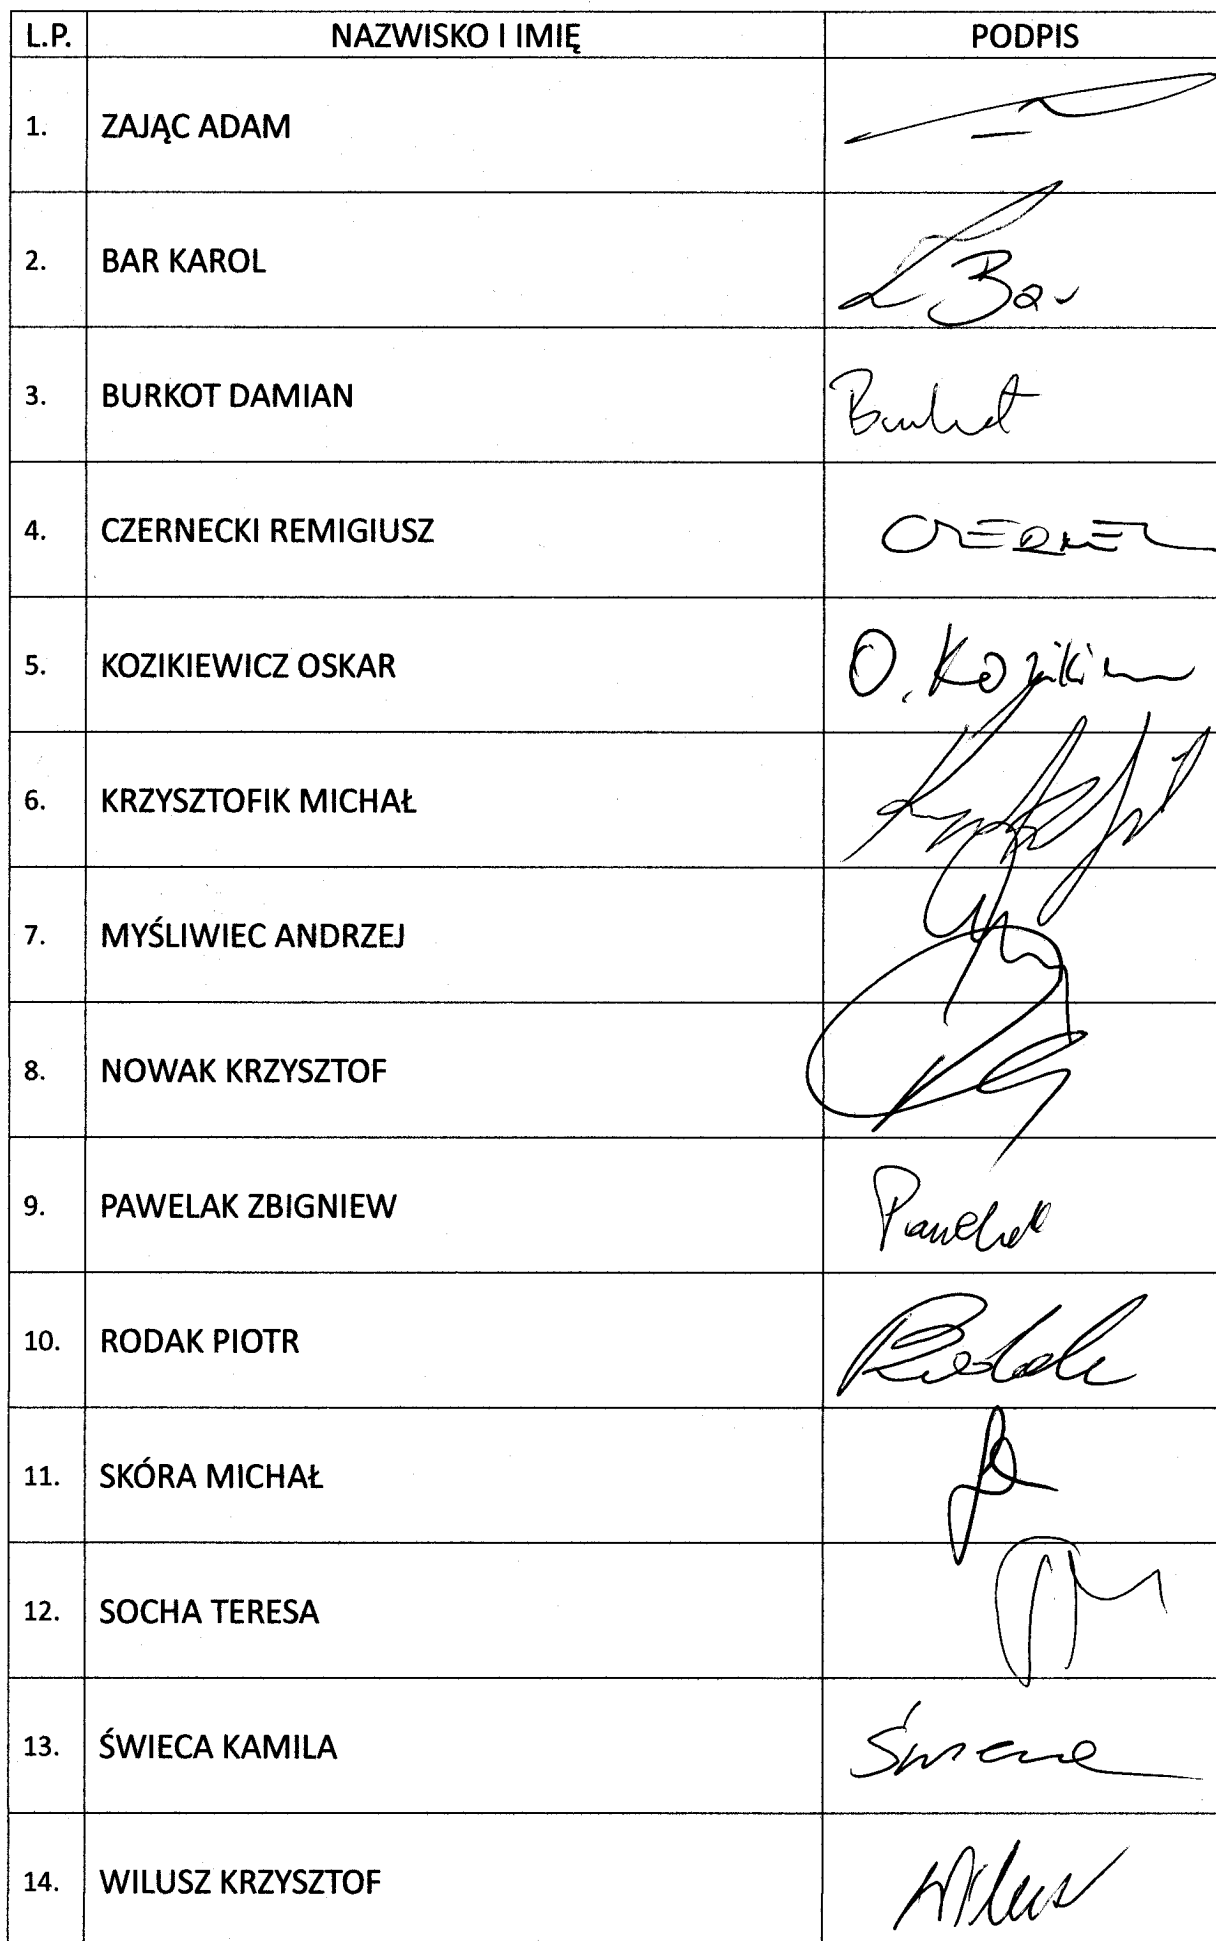 L.P. NAZWISKO I IMIĘ PODPIS
1. ZAJĄC ADAM
2. BAR KAROL Bar
3. BURKOT DAMIAN Burkot
4. CZERNECKI REMIGIUSZ
5. KOZIKIEWICZ OSKAR O. Kozikiew
6. KRZYSZTOFIK MICHAŁ
7. MYŚLIWIEC ANDRZEJ
8. NOWAK KRZYSZTOF
9. PAWELAK ZBIGNIEW Pawelak
10. RODAK PIOTR Rodak
11. SKÓRA MICHAŁ
12. SOCHA TERESA
13. ŚWIECA KAMILA Świeca
14. WILUSZ KRZYSZTOF Wilusz